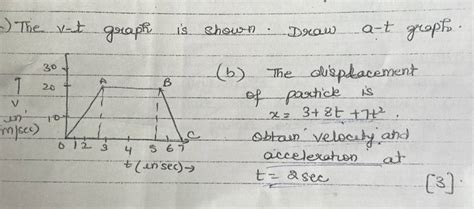 .) The v-t graph is shown. Draw a-t graph.
30
20
10
A
B
C
↑
v
in
m/sec)
0 1 2 3 4 5 6 7
t (in sec) →
(b) The displacement
of particle is
x = 3+8t+7t².
Obtain velocity and
acceleration at
t = 2 sec
[3].